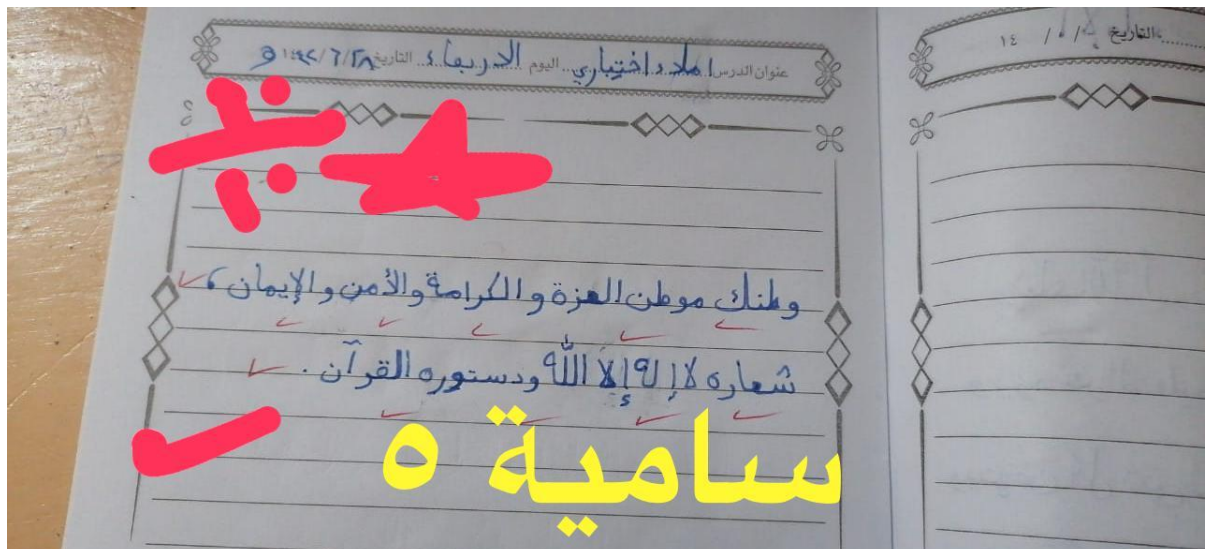 عنوان الدرس املاء اختباري اليوم الاربعاء التاريخ ١٤٤٢/٦/٢٨ هـ
وطنك موطن العزة والكرامة والأمن والإيمان ،
شعاره لا إله إلا الله ودستوره القرآن .
سامية ٥
التاريخ / / ١٤